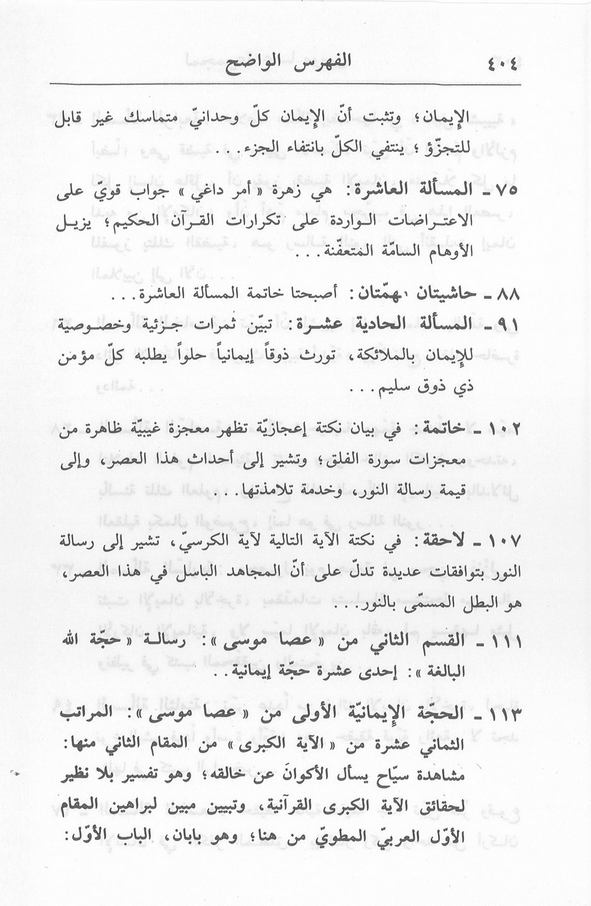 ٤٠٤ الفهرس الواضح
الإيمان؛ وتثبت أنّ الإيمان كلّ وحدانيّ متماسك غير قابل
للتجزّؤ؛ ينتفي الكلّ بانتفاء الجزء...
٧٥ - المسألة العاشرة: هي زهرة «أمر داغي» جواب قويّ على
الاعتراضات الواردة على تكرارات القرآن الحكيم؛ يزيل
الأوهام السامّة المتعفّنة...
٨٨ - حاشيتان مهمّتان: أصبحتا خاتمة المسألة العاشرة...
٩١ - المسألة الحادية عشرة: تبيّن ثمرات جزئية وخصوصية
للإيمان بالملائكة، تورث ذوقاً إيمانياً حلواً يطلبه كلّ مؤمن
ذي ذوق سليم...
١٠٢ - خاتمة: في بيان نكتة إعجازيّة تظهر معجزة غيبيّة ظاهرة من
معجزات سورة الفلق؛ وتشير إلى أحداث هذا العصر، وإلى
قيمة رسالة النور، وخدمة تلامذتها...
١٠٧ - لاحقة: في نكتة الآية التالية لآية الكرسيّ، تشير إلى رسالة
النور بتوافقات عديدة تدلّ على أنّ المجاهد الباسل في هذا العصر،
هو البطل المسمّى بالنور...
١١١ - القسم الثاني من «عصا موسى»: رسالة «حجّة الله
البالغة»: إحدى عشرة حجّة إيمانية..
١١٣ - الحجّة الإيمانيّة الأولى من «عصا موسى»: المراتب
الثماني عشرة من «الآية الكبرى» من المقام الثاني منها:
مشاهدة سيّاح يسأل الأكوانَ عن خالقه؛ وهو تفسير بلا نظير
لحقائق الآية الكبرى القرآنية، وتبيين مبين لبراهين المقام
الأوّل العربيّ المطويّ من هنا؛ وهو بابان، الباب الأوّل: